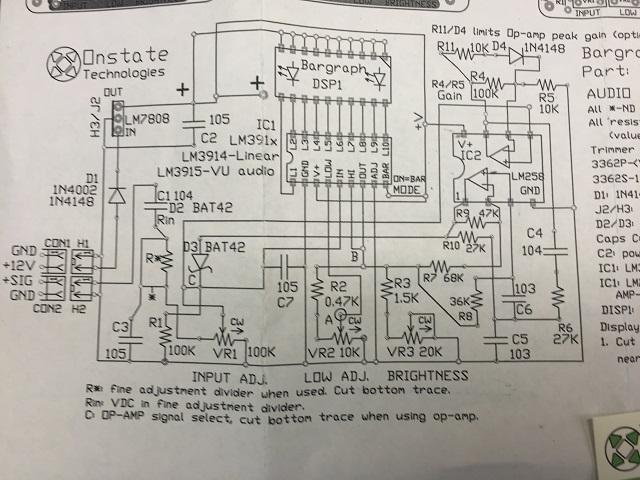 INPUT LOW BRIGHTNESS
INPUT LOW
Onstate
Technologies
OUT
H3/J2
LM7808
IN
+
105
C2
+
Bargraph
DSP1
IC1
LM391x
LM3914-Linear
LM3915-VU audio
L2 L3 L4 L5 L6 L7 L8 L9 L10
L1 GND V+ LOW IN HI OUT ADJ BAR
ON=BAR
MODE
+V
R11/D4 limits Op-amp peak gain
R11 10K D4 1N4148
R4/R5
Gain
R4
100K
R5
10K
V+
IC2
LM258
GND
1
D1
1N4002
1N4148
C1 104
D2 BAT42
Rin
D3 BAT42
R*
*
C
GND
+12V
+SIG
GND
CON1 H1
CON2 H2
C3
105
R1
100K
CW
VR1
100K
105
C7
R2
0.47K
A
CW
VR2 10K
B
R3
1.5K
CW
VR3 20K
R7 68K
36K
R8
R9 47K
R10 27K
C4
104
103
C6
C5
103
R6
27K
INPUT ADJ. LOW ADJ. BRIGHTNESS
R*: fine adjustment divider when used. Cut bottom trace.
Rin: VDC in fine adjustment divider.
C: OP-AMP signal select, cut bottom trace when using op-amp.
Bargr
Part:
AUDIO
All *-ND
All resis
(value
Trimmer
3362P-(
3362S-1
D1: 1N41
J2/H3:
D2/D3:
Caps C
C2: pow
IC1: LM
IC1: LM
AMP-
DISP1:
Display
1. Cut
near